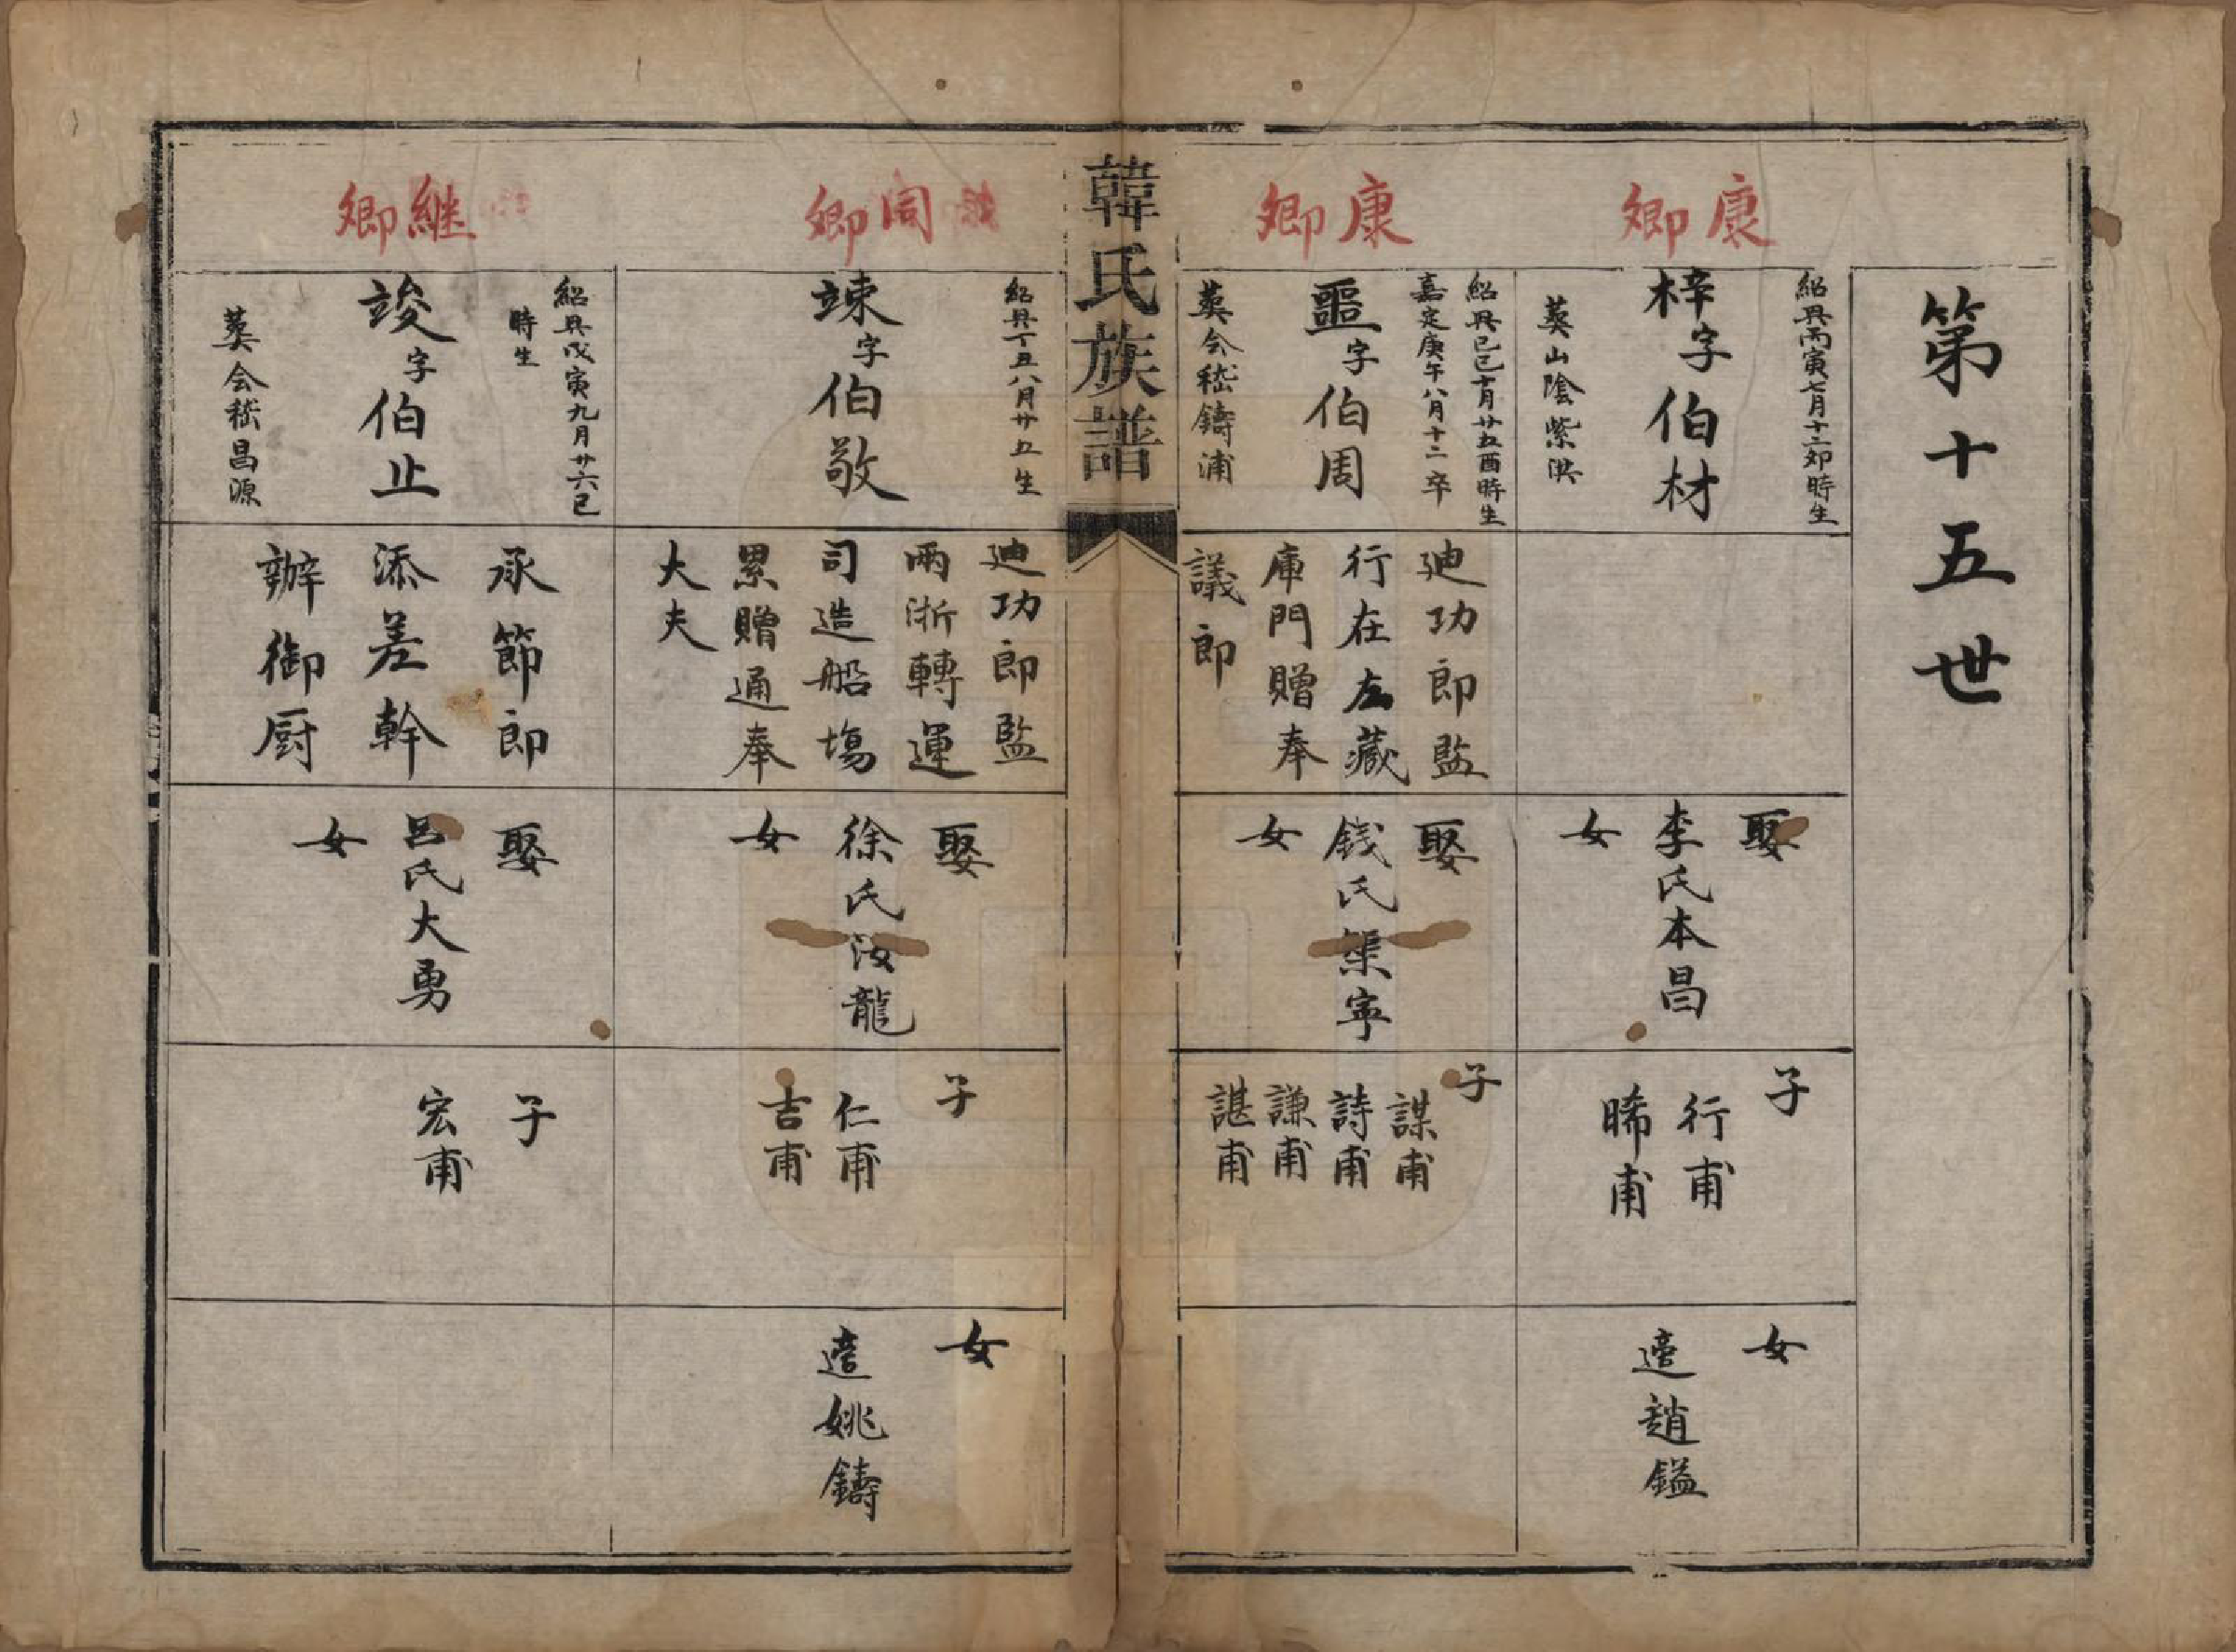 第十五世
康卿
紹興丙寅七月十二卯時生
梓字伯材
葬山陰紫洪
娶
李氏本昌
女
子
行甫
晞甫
女
適趙鎰
康卿
紹興己巳十月廿五酉時生
嘉定庚午八月十二卒
噩字伯周
葬会嵇鑄浦
廸功郎監
行在左藏
庫門贈奉
議郎
娶
錢氏榘寜
女
子
謀甫
詩甫
謙甫
諶甫
韓氏族譜
同卿
紹興丁丑八月廿五生
竦字伯敬
廸功郎監
兩浙轉運
司造船塲
累贈通奉
大夫
娶
徐氏汝龍
女
子
仁甫
吉甫
女
適姚鑄
継卿
紹興戊寅九月廿六巳
時生
竣字伯止
葬会嵇昌源
承節郎
添差幹
辦御厨
娶
呂氏大勇
女
子
宏甫